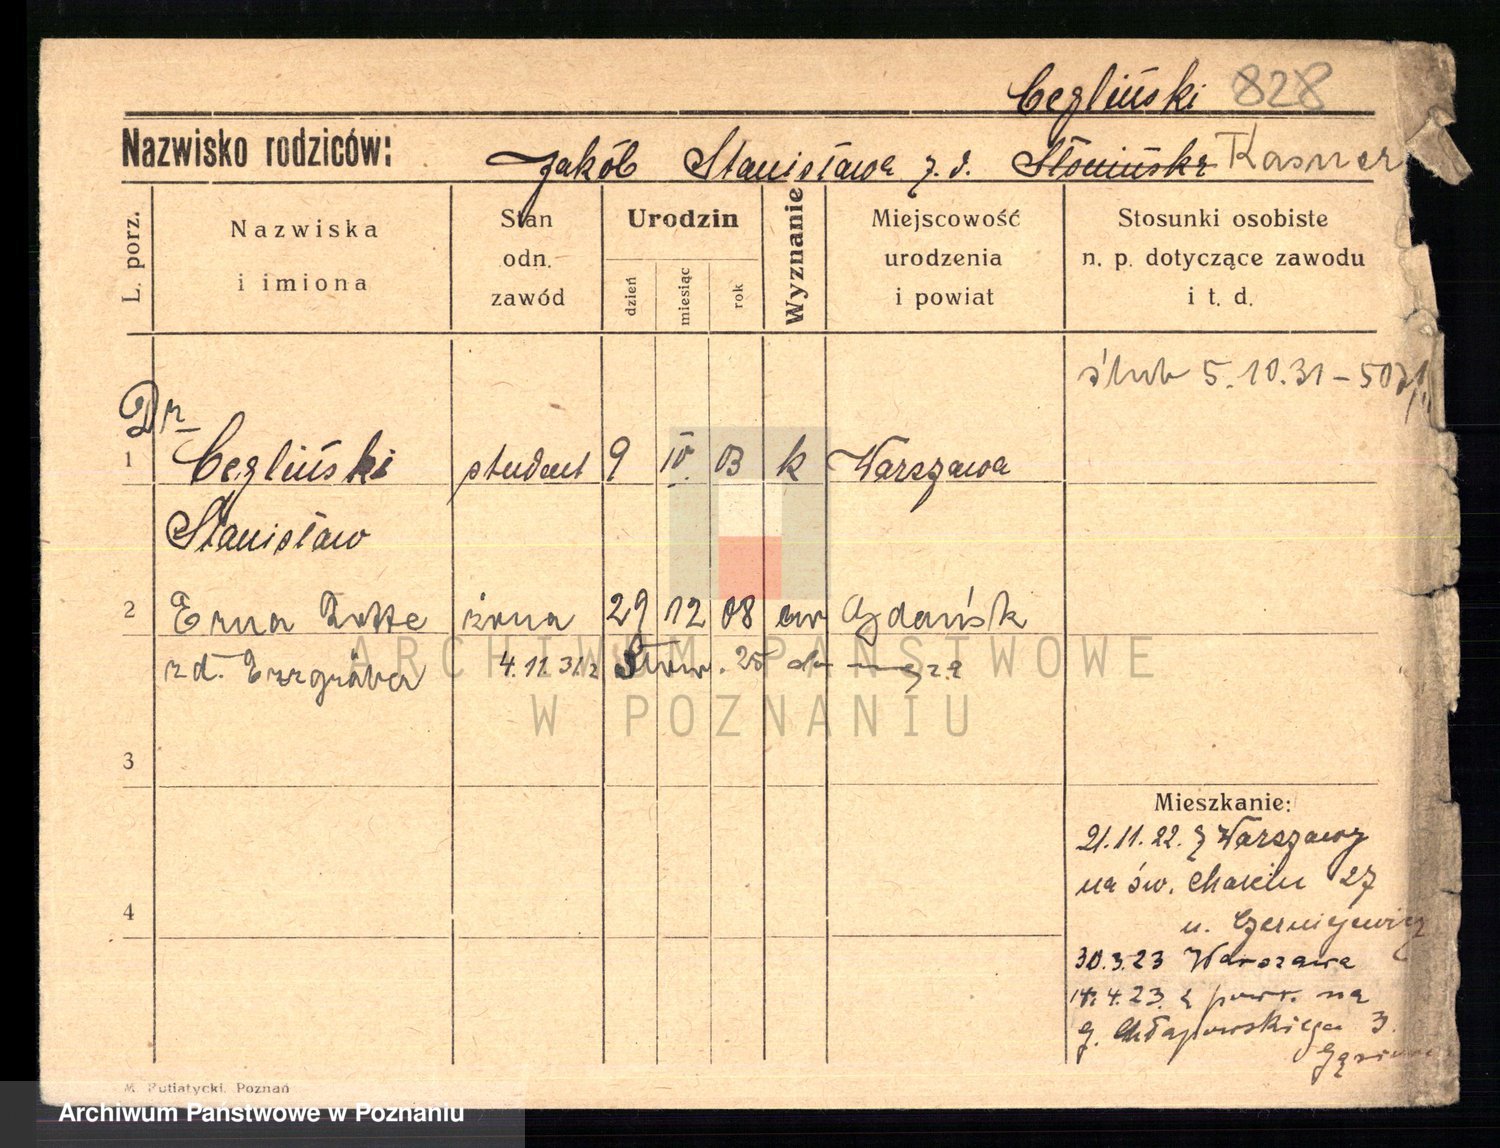 Cegliński 828
Nazwisko rodziców: Jakób Stanisława z. d. Słomińska Kasner
L. porz.
Nazwiska i imiona
Stan odn. zawód
Urodzin
dzień
miesiąc
rok
Wyznanie
Miejscowość urodzenia i powiat
Stosunki osobiste n. p. dotyczące zawodu i t. d.
ślub 5.10.31 –
Dr
1 Cegliński student 9 IV 03 k Warszawa
Stanisław
2 Erna żona 29 12 08 ew Gdańsk
zd. 4.11.31 25 do męża
3
4
Mieszkanie:
21.11.22. z Warszawy
na św. Marcin 27
u. Czerniejewicz
30.3.23 Warszawa
14.4.23. z powr. na
g. Chłapowskiego 3.
M. Putiatycki, Poznań
ARCHIWUM PAŃSTWOWE
W POZNANIU
Archiwum Państwowe w Poznaniu